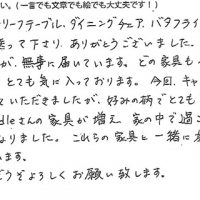 い。(一言でも文章でも絵でも大丈夫です!)
ーリーフテーブル、ダイニングチェア、バタフライ
送って下さり、ありがとうございました。
が、無事に届いています。どの家具も
とても気に入っております。今回、キャ
ていただきましたが、好みの柄でとても
dleさんの家具が増え、家の中で過ご
なりました。これらの家具と一緒に
います。
どうぞよろしくお願い致します。